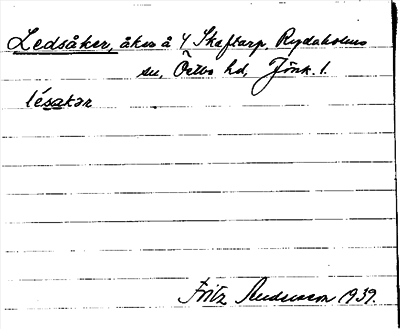 Ledsåker, åker å 4 Skaftarp, Rydaholms
sn, Östbo hd, Jönk. l.
lésakər
Fritz Andersson 1939.